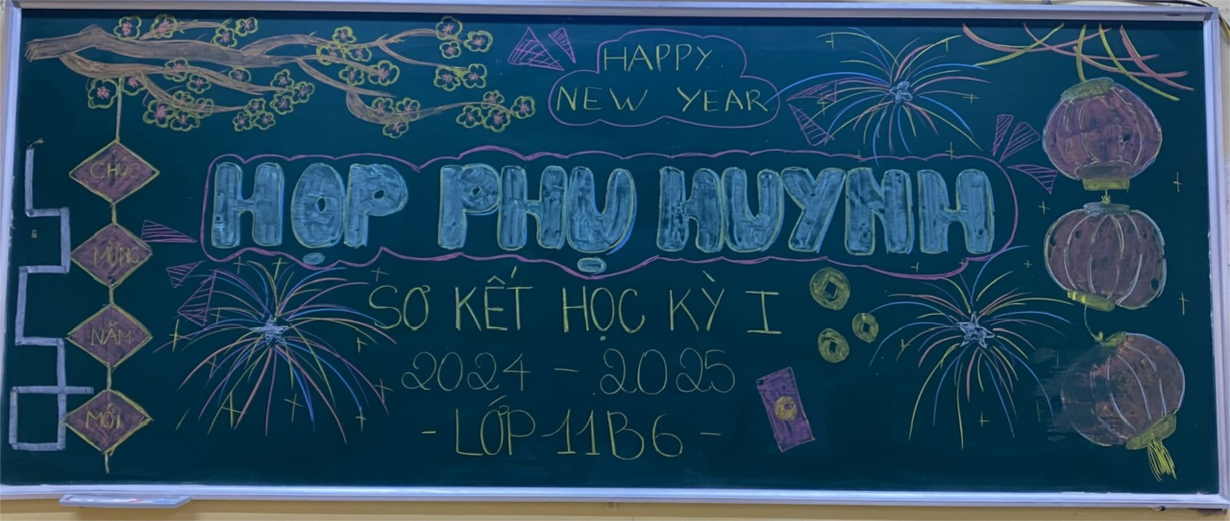 HAPPY
NEW YEAR
HỌP PHỤ HUYNH
SƠ KẾT HỌC KỲ I
2024 - 2025
- LỚP 11B6 -
CHÚC
MỪNG
NĂM
MỚI